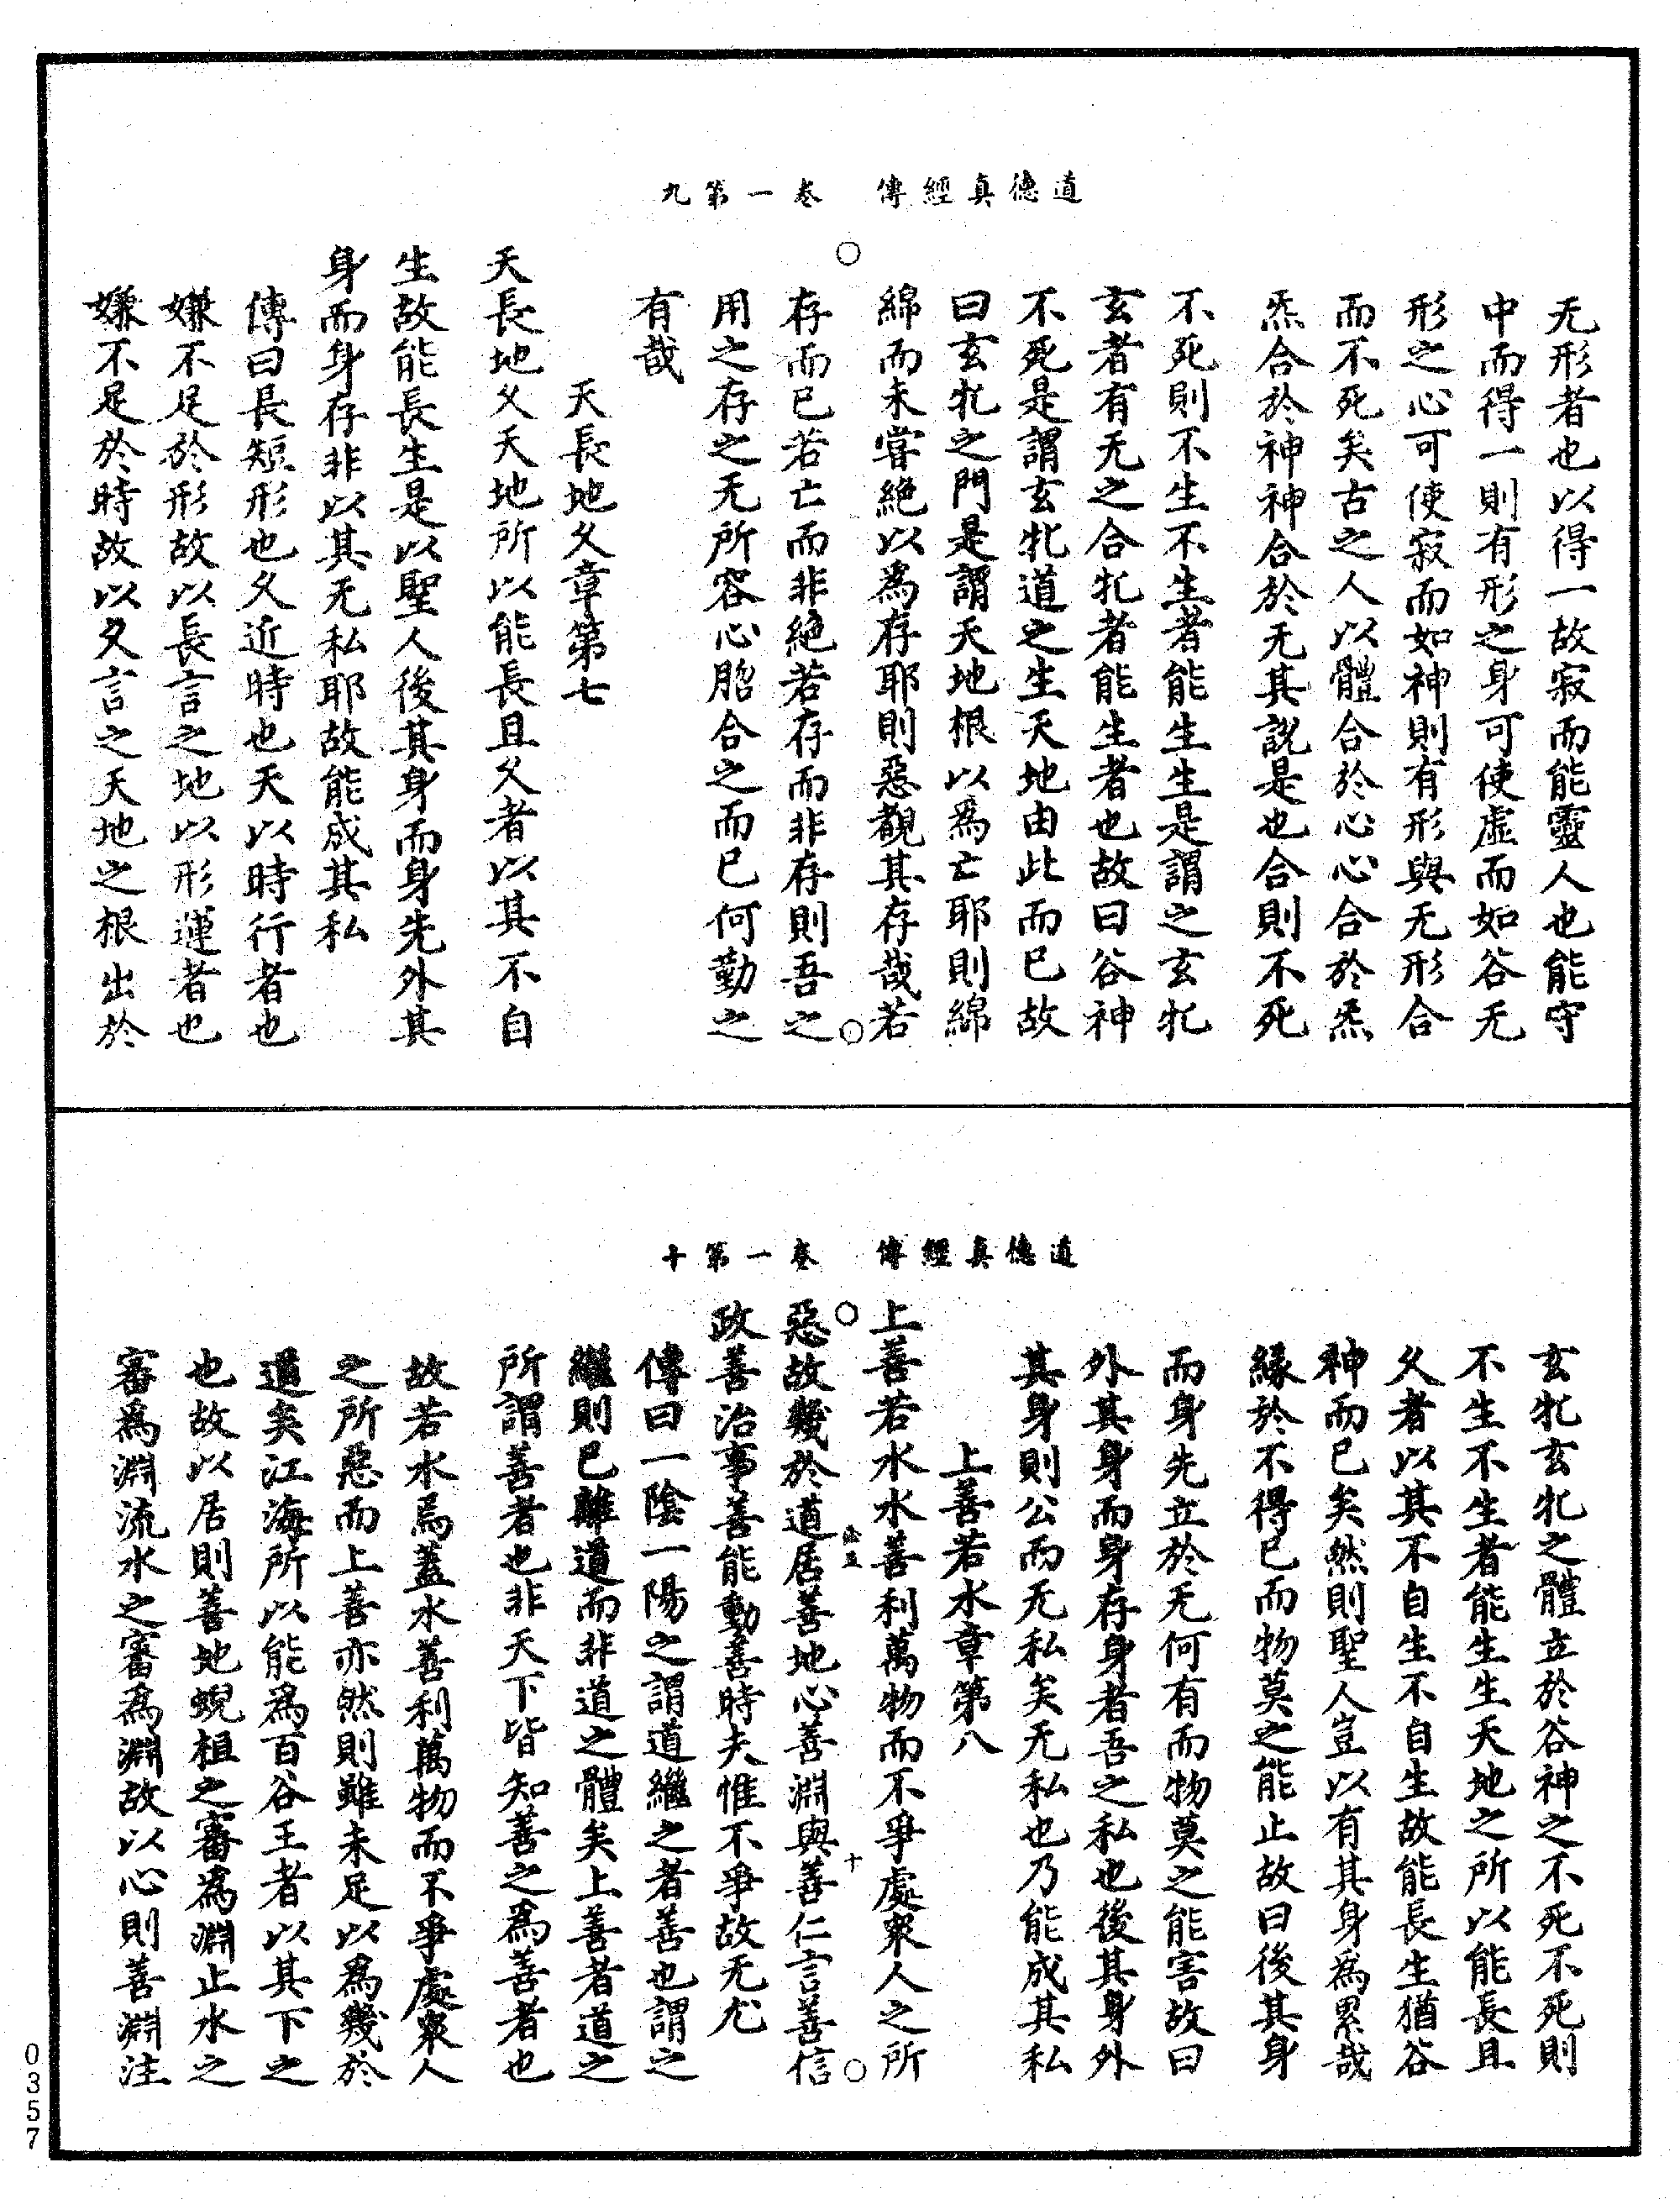 道德真經傳　卷一第九
无形者也以得一故寂而能靈人也能守
中而得一則有形之身可使虛而如谷无
形之心可使寂而如神則有形與无形合
而不死矣古之人以體合於心心合於炁
炁合於神神合於无其說是也合則不死
不死則不生不生者能生生是謂之玄牝
玄者有无之合牝者能生者也故曰谷神
不死是謂玄牝道之生天地由此而已故
曰玄牝之門是謂天地根以爲亡耶則綿
綿而未嘗絕以爲存耶則惡覩其存哉若
存而已若亡而非絕若存而非存則吾之
用之存之无所容心脗合之而已何勤之
有哉
天長地久章第七
天長地久天地所以能長且久者以其不自
生故能長生是以聖人後其身而身先外其
身而身存非以其无私耶故能成其私
傳曰長短形也久近時也天以時行者也
嫌不足於形故以長言之地以形運者也
嫌不足於時故以久言之天地之根出於
道德真經傳　卷一第十
玄牝玄牝之體立於谷神之不死不死則
不生不生者能生生天地之所以能長且
久者以其不自生不自生故能長生猶谷
神而已矣然則聖人豈以有其身爲累哉
緣於不得已而物莫之能止故曰後其身
而身先立於无何有而物莫之能害故曰
外其身而身存身者吾之私也後其身外
其身則公而无私矣无私也乃能成其私
上善若水章第八
上善若水水善利萬物而不爭處衆人之所
惡故幾於道居善地心善淵與善仁言善信
十
政善治事善能動善時夫惟不爭故无尤
傳曰一陰一陽之謂道繼之者善也謂之
繼則已離道而非道之體矣上善者道之
所謂善者也非天下皆知善之爲善者也
故若水焉蓋水善利萬物而不爭處衆人
之所惡而上善亦然則雖未足以爲幾於
道矣江海所以能爲百谷王者以其下之
也故以居則善地蜺柤之審爲淵止水之
審爲淵流水之審爲淵故以心則善淵注
0357